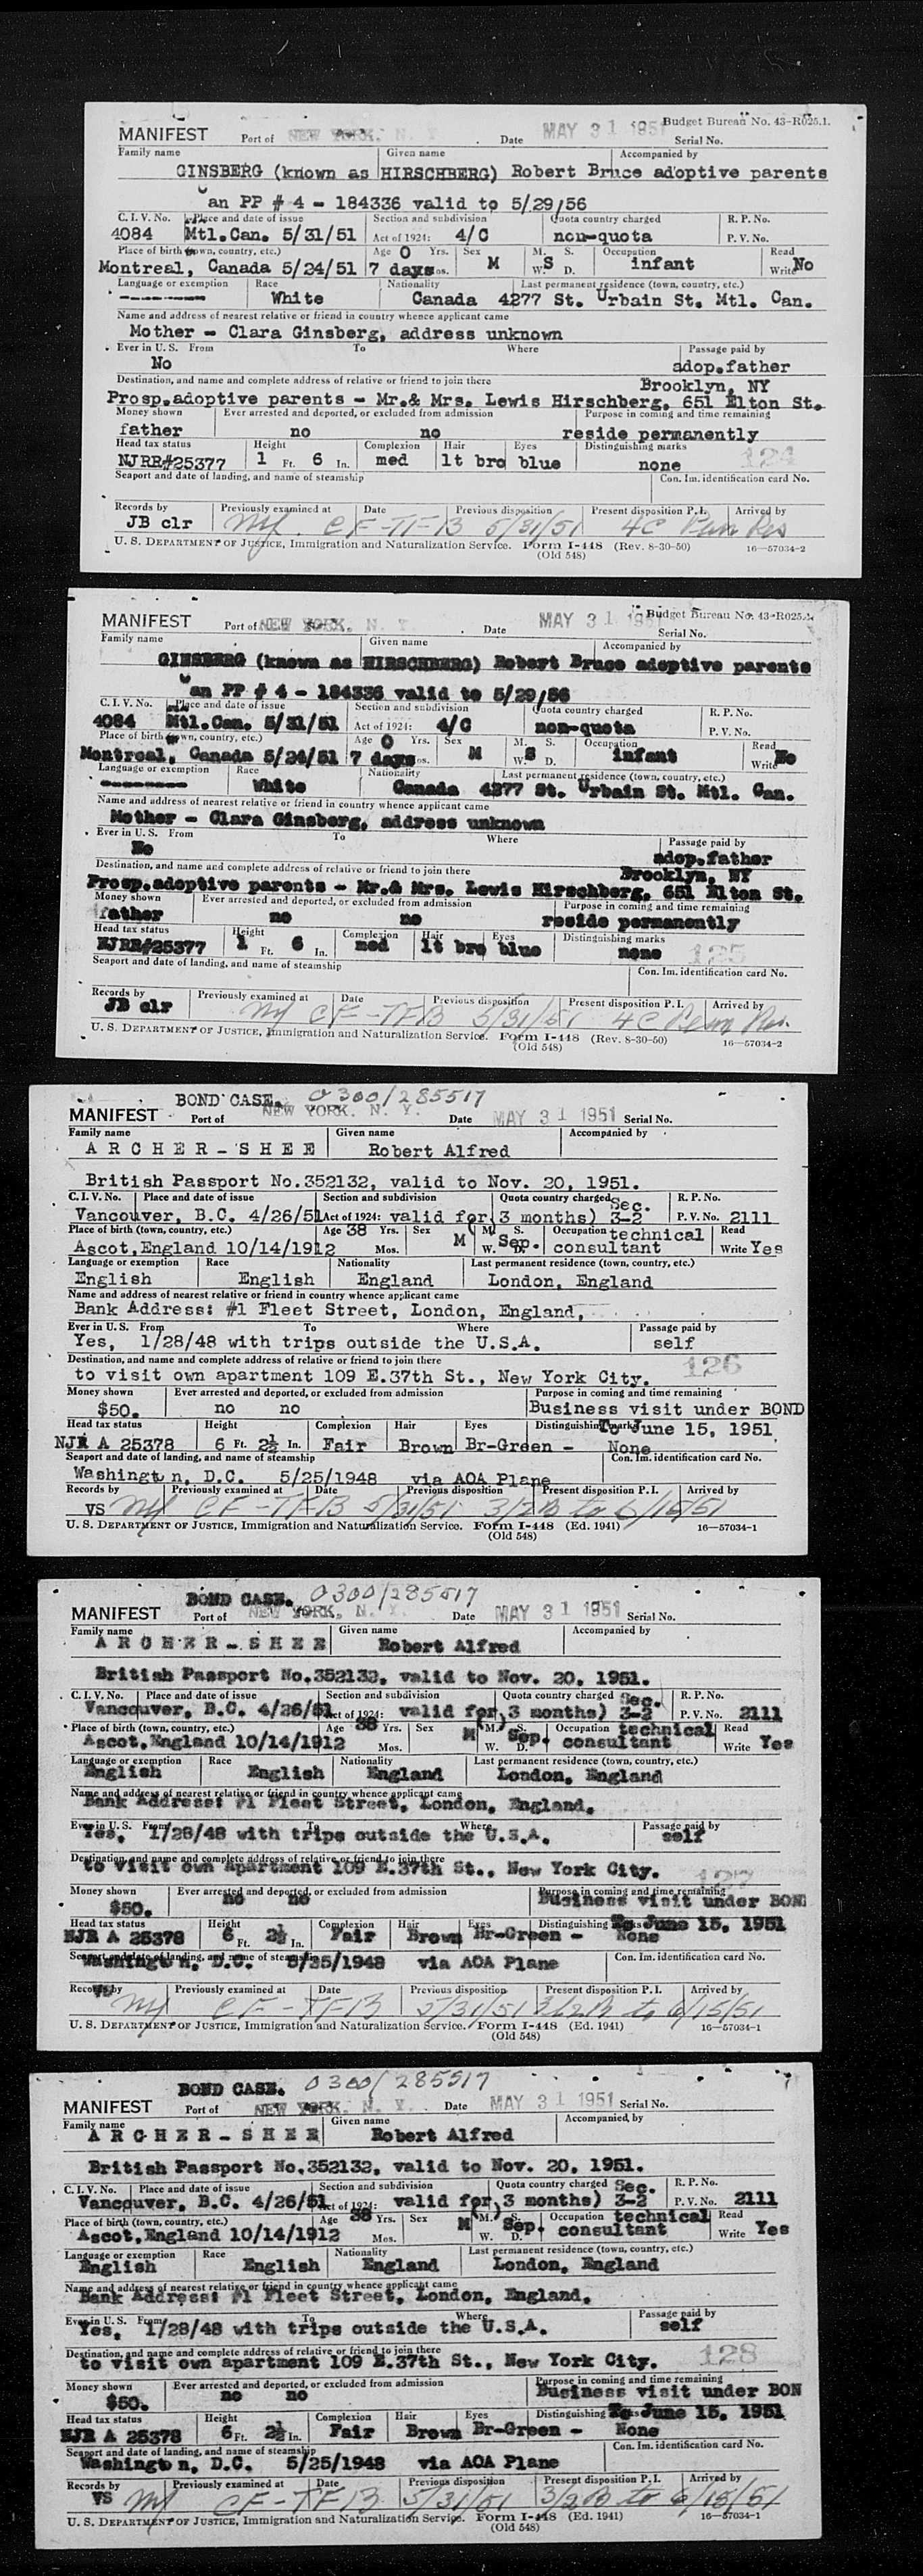 Budget Bureau No. 43-R025.1.
MANIFEST Port of NEW YORK, N. Y. Date MAY 31 1951 Serial No.
Family name Given name Accompanied by
GINSBERG (known as HIRSCHBERG) Robert Bruce adoptive parents
an PP # 4 - 184336 valid to 5/29/56
C. I. V. No. Place and date of issue Section and subdivision Quota country charged R. P. No.
4084 Mtl.Can. 5/31/51 Act of 1924: 4/C non-quota P. V. No.
Place of birth (town, country, etc.) Age 0 Yrs. Sex M. S. Occupation Read
Montreal, Canada 5/24/51 7 days os. M W. S D. infant Write No
Language or exemption Race Nationality Last permanent residence (town, country, etc.)
--------- White Canada 4277 St. Urbain St. Mtl. Can.
Name and address of nearest relative or friend in country whence applicant came
Mother - Clara Ginsberg, address unknown
Ever in U. S. From To Where Passage paid by
No adop.father
Destination, and name and complete address of relative or friend to join there Brooklyn, NY
Prosp.adoptive parents - Mr.& Mrs. Lewis Hirschberg, 651 Elton St.
Money shown Ever arrested and deported, or excluded from admission Purpose in coming and time remaining
father no no reside permanently
Head tax status Height Complexion Hair Eyes Distinguishing marks 124
NJRR#25377 1 Ft. 6 In. med lt bro blue none
Seaport and date of landing, and name of steamship Con. Im. identification card No.
Records by Previously examined at Date Previous disposition Present disposition P. I. Arrived by
JB clr CF-TF13 5/31/51 4C Perm Res
U. S. DEPARTMENT OF JUSTICE, Immigration and Naturalization Service. Form I-448 (Rev. 8-30-50) 16—57034-2
(Old 548)
Budget Bureau No. 43-R025.1.
MANIFEST Port of NEW YORK, N. Y. Date MAY 31 1951 Serial No.
Family name Given name Accompanied by
GINSBERG (known as HIRSCHBERG) Robert Bruce adoptive parents
an PP # 4 - 184336 valid to 5/29/56
C. I. V. No. Place and date of issue Section and subdivision Quota country charged R. P. No.
4084 Mtl.Can. 5/31/51 Act of 1924: 4/C non-quota P. V. No.
Place of birth (town, country, etc.) Age 0 Yrs. Sex M. S. Occupation Read
Montreal, Canada 5/24/51 7 days os. M W. S D. infant Write No
Language or exemption Race Nationality Last permanent residence (town, country, etc.)
--------- White Canada 4277 St. Urbain St. Mtl. Can.
Name and address of nearest relative or friend in country whence applicant came
Mother - Clara Ginsberg, address unknown
Ever in U. S. From To Where Passage paid by
No adop.father
Destination, and name and complete address of relative or friend to join there Brooklyn, NY
Prosp.adoptive parents - Mr.& Mrs. Lewis Hirschberg, 651 Elton St.
Money shown Ever arrested and deported, or excluded from admission Purpose in coming and time remaining
father no no reside permanently
Head tax status Height Complexion Hair Eyes Distinguishing marks 125
NJRR#25377 1 Ft. 6 In. med lt bro blue none
Seaport and date of landing, and name of steamship Con. Im. identification card No.
Records by Previously examined at Date Previous disposition Present disposition P. I. Arrived by
JB clr CF-TF13 5/31/51 4C Perm Res.
U. S. DEPARTMENT OF JUSTICE, Immigration and Naturalization Service. Form I-448 (Rev. 8-30-50) 16—57034-2
(Old 548)
BOND CASE. 0300/285517
MANIFEST Port of NEW YORK, N. Y. Date MAY 31 1951 Serial No.
Family name Given name Accompanied by
ARCHER-SHEE Robert Alfred
British Passport No.352132, valid to Nov. 20, 1951.
C. I. V. No. Place and date of issue Section and subdivision Quota country charged Sec. R. P. No.
Vancouver, B.C. 4/26/51 Act of 1924: valid for 3 months) 3-2 P. V. No. 2111
Place of birth (town, country, etc.) Age 38 Yrs. Sex M. S. Occupation technical Read
Ascot,England 10/14/1912 Mos. M W. Sep. D. consultant Write Yes
Language or exemption Race Nationality Last permanent residence (town, country, etc.)
English English England London, England
Name and address of nearest relative or friend in country whence applicant came
Bank Address: #1 Fleet Street, London, England.
Ever in U. S. From To Where Passage paid by
Yes, 1/28/48 with trips outside the U.S.A. self
Destination, and name and complete address of relative or friend to join there 126
to visit own apartment 109 E.37th St., New York City.
Money shown Ever arrested and deported, or excluded from admission Purpose in coming and time remaining
$50. no no Business visit under BOND
Head tax status Height Complexion Hair Eyes Distinguishing marks To June 15, 1951
NJR A 25378 6 Ft. 2½ In. Fair Brown Br-Green - None
Seaport and date of landing, and name of steamship Con. Im. identification card No.
Washingt n, D.C. 5/25/1948 via AOA Plane
Records by Previously examined at Date Previous disposition Present disposition P. I. Arrived by
VS CF-TF13 5/31/51 3/2B to 6/15/51
U. S. DEPARTMENT OF JUSTICE, Immigration and Naturalization Service. Form I-448 (Ed. 1941) 16—57034-1
(Old 548)
BOND CASE. 0300/285517
MANIFEST Port of NEW YORK, N. Y. Date MAY 31 1951 Serial No.
Family name Given name Accompanied by
ARCHER-SHEE Robert Alfred
British Passport No.352132, valid to Nov. 20, 1951.
C. I. V. No. Place and date of issue Section and subdivision Quota country charged Sec. R. P. No.
Vancouver, B.C. 4/26/51 Act of 1924: valid for 3 months) 3-2 P. V. No. 2111
Place of birth (town, country, etc.) Age 38 Yrs. Sex M. S. Occupation technical Read
Ascot,England 10/14/1912 Mos. M W. Sep. D. consultant Write Yes
Language or exemption Race Nationality Last permanent residence (town, country, etc.)
English English England London, England
Name and address of nearest relative or friend in country whence applicant came
Bank Address: #1 Fleet Street, London, England.
Ever in U. S. From To Where Passage paid by
Yes, 1/28/48 with trips outside the U.S.A. self
Destination, and name and complete address of relative or friend to join there
to visit own apartment 109 E.37th St., New York City. 127
Money shown Ever arrested and deported, or excluded from admission Purpose in coming and time remaining
$50. no no Business visit under BOND
Head tax status Height Complexion Hair Eyes Distinguishing marks To June 15, 1951
NJR A 25378 6 Ft. 2½ In. Fair Brown Br-Green - None
Seaport and date of landing, and name of steamship Con. Im. identification card No.
Washingt n, D.C. 5/25/1948 via AOA Plane
Records by Previously examined at Date Previous disposition Present disposition P. I. Arrived by
VS CF-TF13 5/31/51 3/2B to 6/15/51
U. S. DEPARTMENT OF JUSTICE, Immigration and Naturalization Service. Form I-448 (Ed. 1941) 16—57034-1
(Old 548)
BOND CASE. 0300/285517
MANIFEST Port of NEW YORK, N. Y. Date MAY 31 1951 Serial No.
Family name Given name Accompanied by
ARCHER-SHEE Robert Alfred
British Passport No.352132, valid to Nov. 20, 1951.
C. I. V. No. Place and date of issue Section and subdivision Quota country charged Sec. R. P. No.
Vancouver, B.C. 4/26/51 Act of 1924: valid for 3 months) 3-2 P. V. No. 2111
Place of birth (town, country, etc.) Age 38 Yrs. Sex M. S. Occupation technical Read
Ascot,England 10/14/1912 Mos. M W. Sep. D. consultant Write Yes
Language or exemption Race Nationality Last permanent residence (town, country, etc.)
English English England London, England
Name and address of nearest relative or friend in country whence applicant came
Bank Address: #1 Fleet Street, London, England.
Ever in U. S. From To Where Passage paid by
Yes, 1/28/48 with trips outside the U.S.A. self
Destination, and name and complete address of relative or friend to join there 128
to visit own apartment 109 E.37th St., New York City.
Money shown Ever arrested and deported, or excluded from admission Purpose in coming and time remaining
$50. no no Business visit under BON
Head tax status Height Complexion Hair Eyes Distinguishing marks To June 15, 1951
NJR A 25378 6 Ft. 2½ In. Fair Brown Br-Green - None
Seaport and date of landing, and name of steamship Con. Im. identification card No.
Washingt n, D.C. 5/25/1948 via AOA Plane
Records by Previously examined at Date Previous disposition Present disposition P. I. Arrived by
VS CF-TF13 5/31/51 3/2B to 6/15/51
U. S. DEPARTMENT OF JUSTICE, Immigration and Naturalization Service. Form I-448 (Ed. 1941) 16—57034-1
(Old 548)